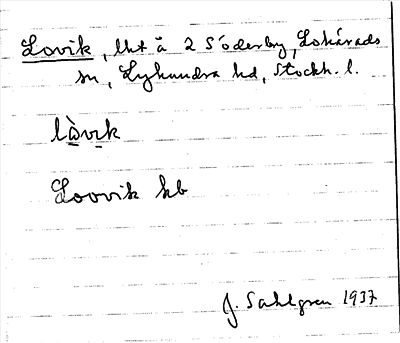 Lovik, lht å 2 Söderby, Lohärads
sn, Lyhundra hd, Stockh. l.
lò̱vi̱k
Loovik kb
J. Sahlgren 1937